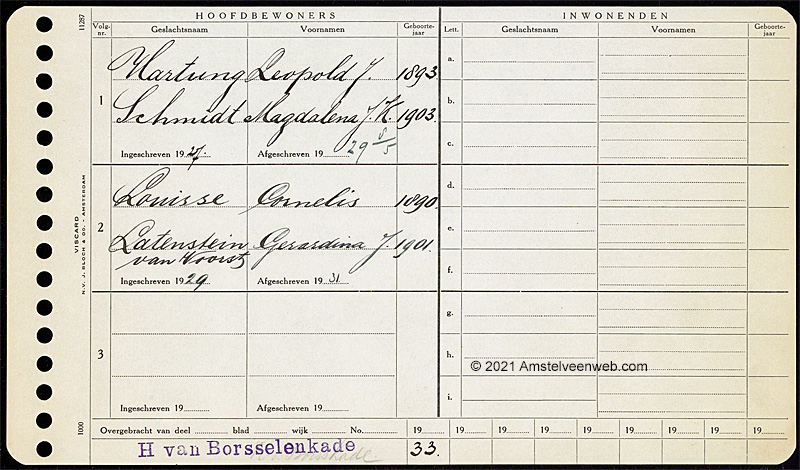 HOOFDBEWONERS
INWONENDEN
Volg-nr. Geslachtsnaam Voornamen Geboorte-jaar
Lett. Geslachtsnaam Voornamen Geboorte-jaar
1
Hartung Leopold J. 1893
Schmidt Magdalena J. K. 1903.
Ingeschreven 1927. Afgeschreven 19 29 8/5
2
Louisse Cornelis 1890
Latenstein Gerardina J. 1901.
van Voorst
Ingeschreven 1929 Afgeschreven 19 31
3
Ingeschreven 19 Afgeschreven 19
a.
b.
c.
d.
e.
f.
g.
h.
i.
Overgebracht van deel blad wijk No. 19 19 19 19 19 19 19 19 19
H van Borsselenkade 33.
11287
VISCARD
N.V. J. BLOCH & Co. - AMSTERDAM
1000
© 2021 Amstelveenweb.com